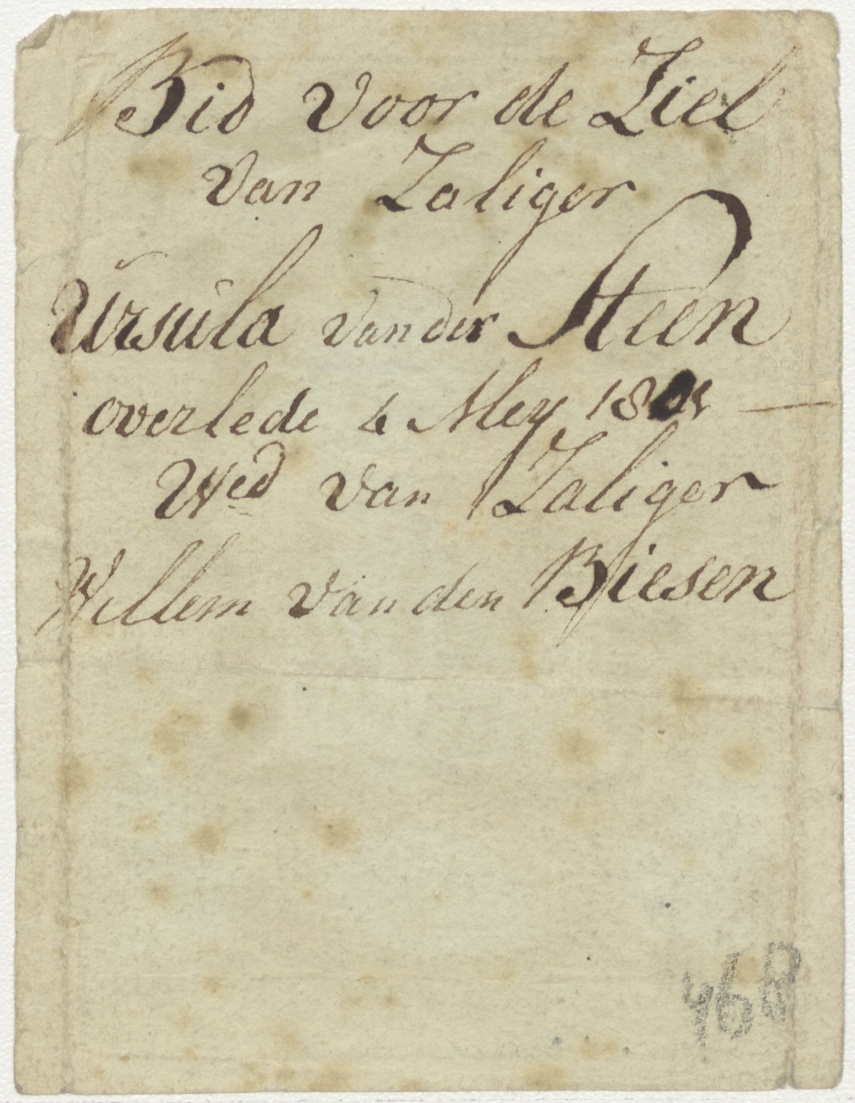 Bid voor de Ziel
van Zaliger
Ursula vander Steen
overlede 4 Mey
Wed van Zaliger
Willem van den Biesen
468